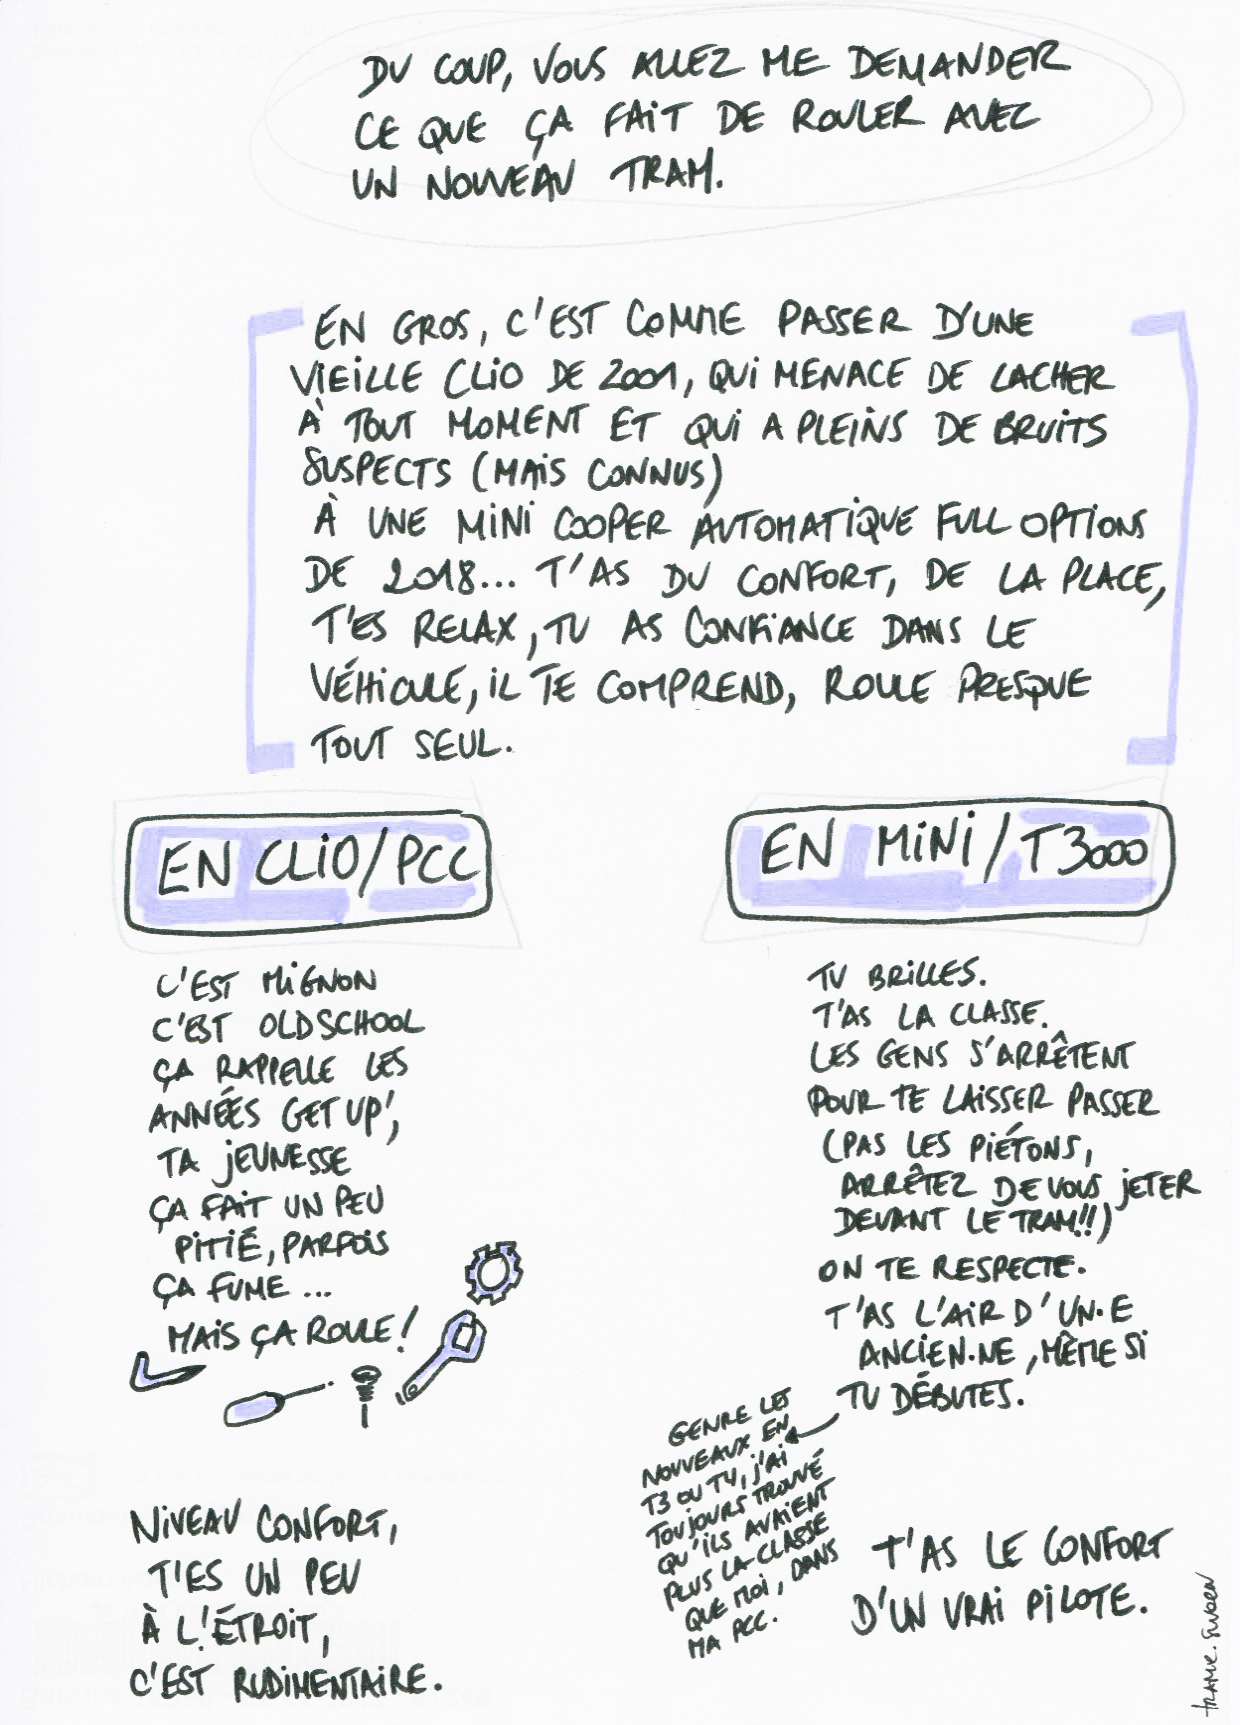 DU COUP, VOUS ALLEZ ME DEMANDER
CE QUE ÇA FAIT DE ROULER AVEC
UN NOUVEAU TRAM.
EN GROS, C'EST COMME PASSER D'UNE
VIEILLE CLIO DE 2001, QUI MENACE DE LACHER
À TOUT MOMENT ET QUI A PLEINS DE BRUITS
SUSPECTS (MAIS CONNUS)
À UNE MINI COOPER AUTOMATIQUE FULL OPTIONS
DE 2018... T'AS DU CONFORT, DE LA PLACE,
T'ES RELAX, TU AS CONFIANCE DANS LE
VÉHICULE, IL TE COMPREND, ROULE PRESQUE
TOUT SEUL.
EN CLIO/PCC
C'EST MIGNON
C'EST OLDSCHOOL
ÇA RAPPELLE LES
ANNÉES GET UP',
TA JEUNESSE
ÇA FAIT UN PEU
PITIÉ, PARFOIS
ÇA FUME ...
MAIS ÇA ROULE!
NIVEAU CONFORT,
T'ES UN PEU
À L'ÉTROIT,
C'EST RUDIMENTAIRE.
EN MINI/T3000
TU BRILLES.
T'AS LA CLASSE.
LES GENS S'ARRÊTENT
POUR TE LAISSER PASSER
(PAS LES PIÉTONS,
ARRÊTEZ DE VOUS JETER
DEVANT LE TRAM!!)
ON TE RESPECTE.
T'AS L'AIR D'UN·E
ANCIEN·NE, MÊME SI
TU DÉBUTES.
GENRE LES
NOUVEAUX EN
T3 OU T4, J'AI
TOUJOURS TROUVÉ
QU'ILS AVAIENT
PLUS LA CLASSE
QUE MOI, DANS
MA PCC.
T'AS LE CONFORT
D'UN VRAI PILOTE.